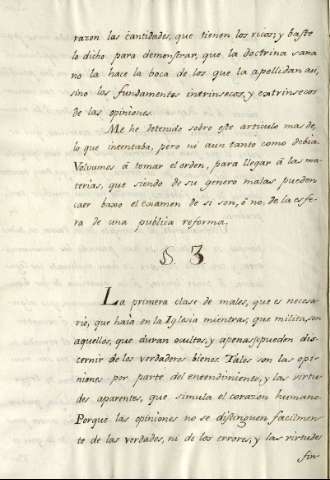 razon las cantidades, que tienen los ricos; y baste
lo dicho para demonstrar, que la doctrina sana
no la hace la boca de los que la apellidan asi,
sino los fundamentos intrinsecos, y extrinsecos
de las opiniones.
Me he detenido sobre este articulo mas de,
lo que intentaba, pero ni aun tanto como debia.
Volvamos á tomar el orden, para llegar á las ma-
terias, que siendo de su genero malas pueden
caer baxo el examen de si son, ó no, de la esfe-
ra de una publica reforma.
§ 3
La primera clase de males, que es necesa-
rio, que haia en la Iglesia mientras, que milita, son
aquellos, que duran ocultos, y apenas pueden dis-
cernir de los verdaderos bienes. Tales son las opi-
niones por parte del entendimiento, y las virtu-
des aparentes, que simula el corazon humano.
Porque las opiniones no se distinguen facilmen-
te de las verdades, ni de los errores, y las virtudes
fin